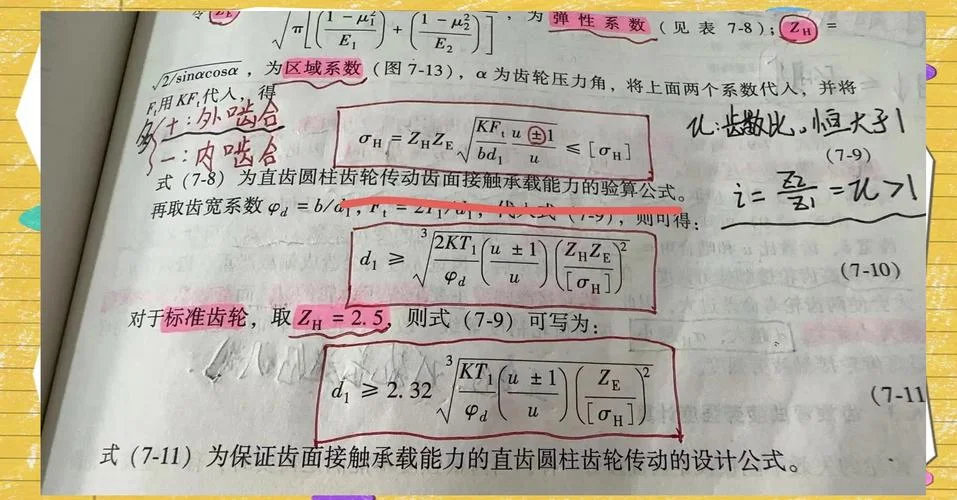 令 Z_E √π[((1-μ₁²)/E₁)+((1-μ₂²)/E₂)], 为弹性系数(见表 7-8); Z_H =
√2/sinαcosα, 为区域系数(图7-13), α为齿轮压力角, 将上面两个系数代入, 并将
F_t用KF_t代入, 得
+:外啮合
-:内啮合
σ_H = Z_H Z_E √((KF_t/bd₁)((u±1)/u)) ≤ [σ_H]
u:齿数比, 恒大于1
(7-9)
i = Z₂/Z₁ = u > 1
式(7-8)为直齿圆柱齿轮传动齿面接触承载能力的验算公式。
再取齿宽系数φ_d = b/d₁, F_t = 2T₁/d₁, 代入式(7-9), 则可得:
d₁ ≥ ³√((2KT₁/φ_d)((u±1)/u)(Z_H Z_E/[σ_H])²)
(7-10)
对于标准齿轮, 取Z_H = 2.5, 则式(7-9)可写为:
d₁ ≥ 2.32 ³√((KT₁/φ_d)((u±1)/u)(Z_E/[σ_H])²)
(7-11
式(7-11)为保证齿面接触承载能力的直齿圆柱齿轮传动的设计公式。